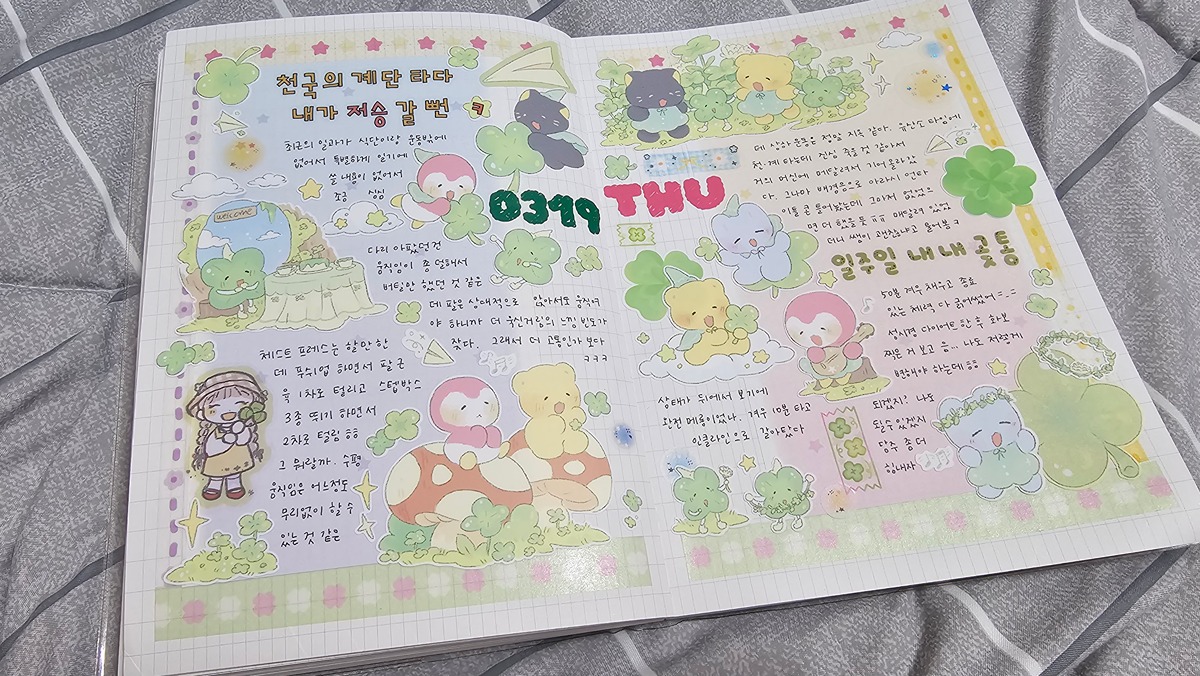 천국의 계단 타다
내가 저승 갈 뻔 ㅋ
최근의 일과가 식단이랑 운동밖에
없어서 특별하게 일기에
쓸 내용이 없어서
조금 심심
welcome
다리 아팠던건
움직임이 좀 덜해서
버틸만 했던 것 같은
데 팔은 상대적으로 앉아서도 움직여
야 하니까 더 욱신거림의 느낌 빈도가
잦다. 그래서 더 고통인가 보다
ㅋㅋㅋ
체스트 프레스는 할만 한
데 푸쉬업 하면서 팔 근
육 1차로 털리고 스텝박스
3종 뛰기 하면서
2차로 털림 ㅎㅎ
그 뭐랄까. 수평
움직임은 어느정도
무리없이 할 수
있는 것 같은
0399 THU
데 상하 운동은 정말 지옥 같아. 유산소 타임에
천.계 타는데 진심 죽을 것 같아서
거의 머신에 매달려서 기어 올라갔
다. 그나마 배경음으로 아라시 언타
이틀 콘 틀어놨는데 그마저 없었으
면 더 했을 듯 ㅠㅠ 매달려 있었
더니 쌤이 괜찮냐고 물어봄 ㅋ
일주일 내내 곶통
50분 겨우 채우고 종료
있는 체력 다 긁어썼어 =_=
성시경 다이어트 한 후 화보
찍은 거 보고 음... 나도 저렇게
변해야 하는데 ㅎㅎ
되겠지? 나도
될 수 있겠지
당주 좀 더
힘내자
상태가 뒤에서 보기에
완전 메롱이었나. 겨우 10분 타고
인클라인으로 갈아탔다